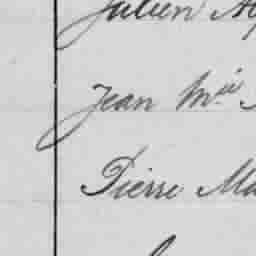 Julien
Jean M.ie
Pierre Ma